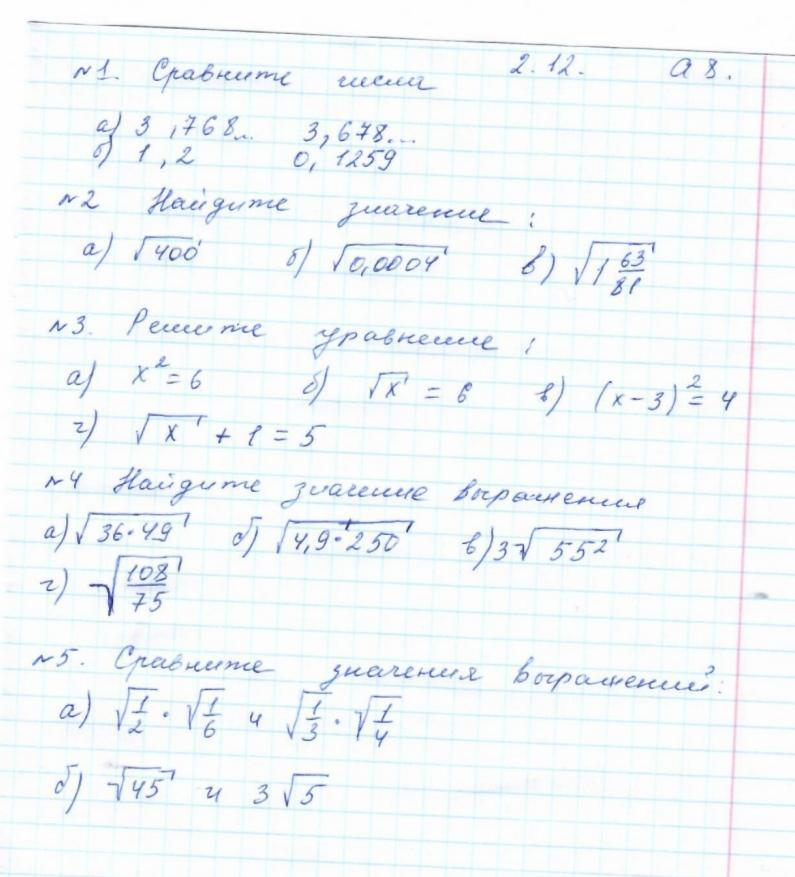 №1. Сравните числа 2.12. А 8.
а) 3,768... 3,678...
б) 1,2 0,1259
№2 Найдите значение:
а) √400 б) √0,0004 в) √1 63/81
№3. Решите уравнение:
а) x² = 6 б) √x = 6 в) (x-3)² = 4
г) √x + 1 = 5
№4 Найдите значение выражения
а) √36·49 б) √4,9·250 в) 3√55²
г) √108/75
№5. Сравните значения выражений:
а) √1/2 · √1/6 и √1/3 · √1/4
б) √45 и 3√5